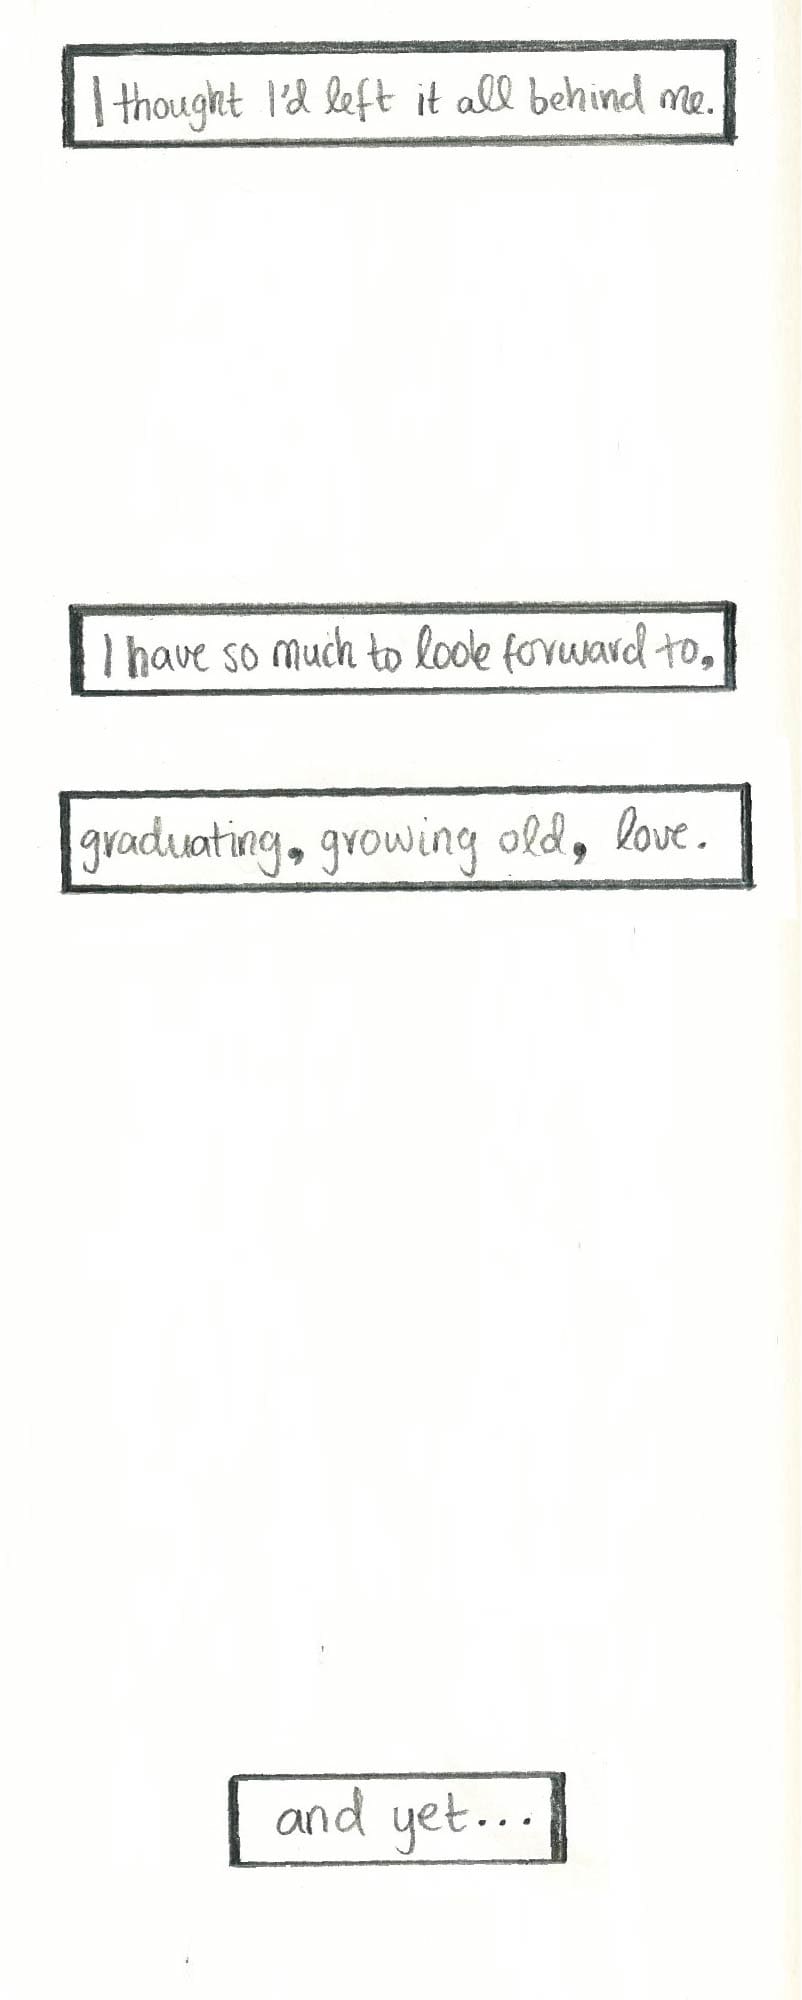 I thought I'd left it all behind me.
I have so much to look forward to,
graduating, growing old, love.
and yet...